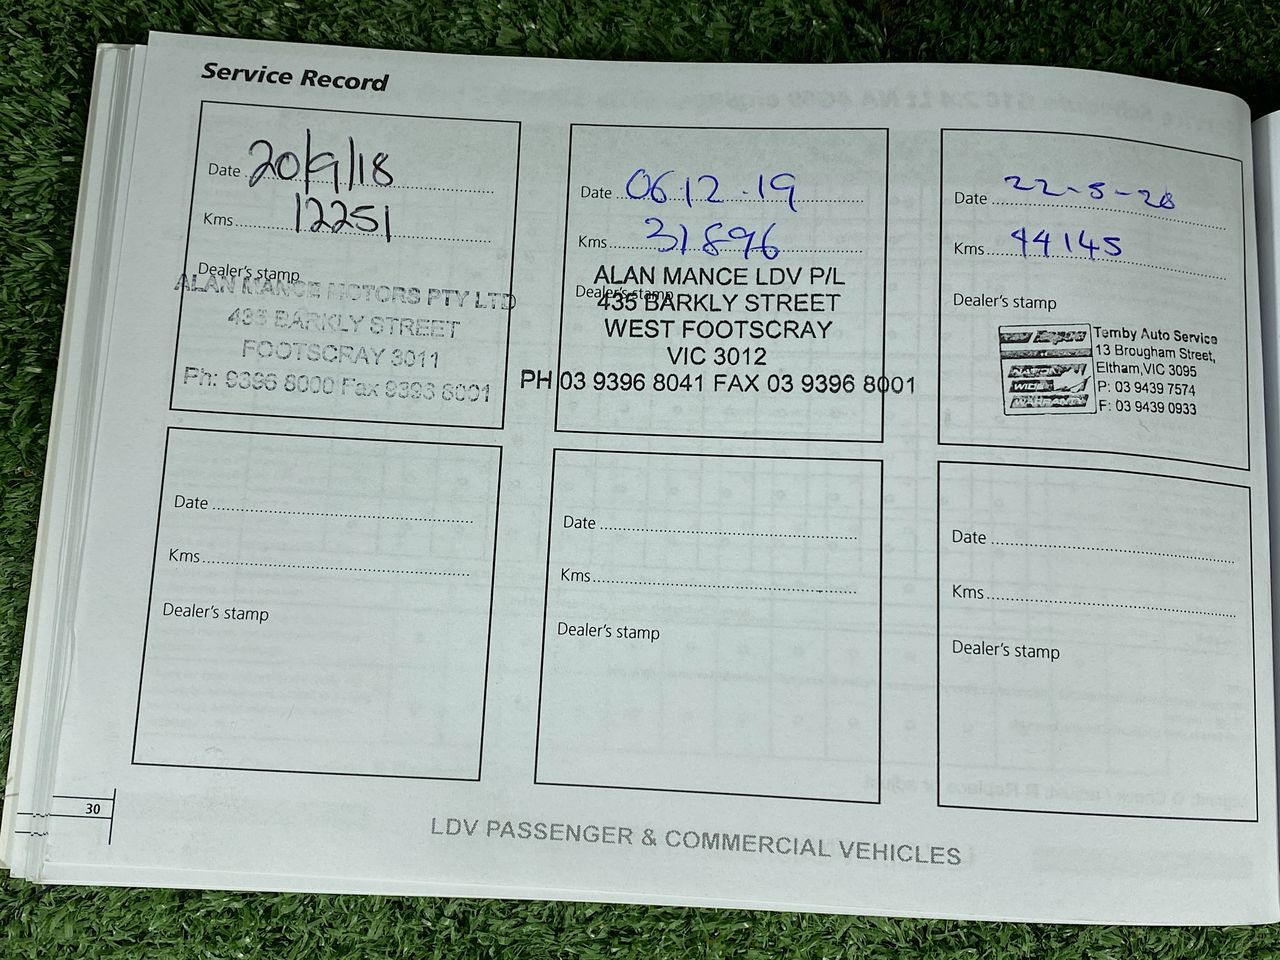 Service Record
Date 20/9/18
Kms 12251
Dealer's stamp
ALAN MANCE MOTORS PTY LTD
435 BARKLY STREET
FOOTSCRAY 3011
Ph: 9396 8000 Fax 9396 8001
Date 06.12.19
Kms 31896
Dealer's stamp
ALAN MANCE LDV P/L
435 BARKLY STREET
WEST FOOTSCRAY
VIC 3012
PH 03 9396 8041 FAX 03 9396 8001
Date 22-5-20
Kms 44145
Dealer's stamp
Temby Auto Service
13 Brougham Street,
Eltham, VIC 3095
P: 03 9439 7574
F: 03 9439 0933
NATION
WIDE
WARRANTY
Date
Kms
Dealer's stamp
Date
Kms
Dealer's stamp
Date
Kms
Dealer's stamp
30
LDV PASSENGER & COMMERCIAL VEHICLES